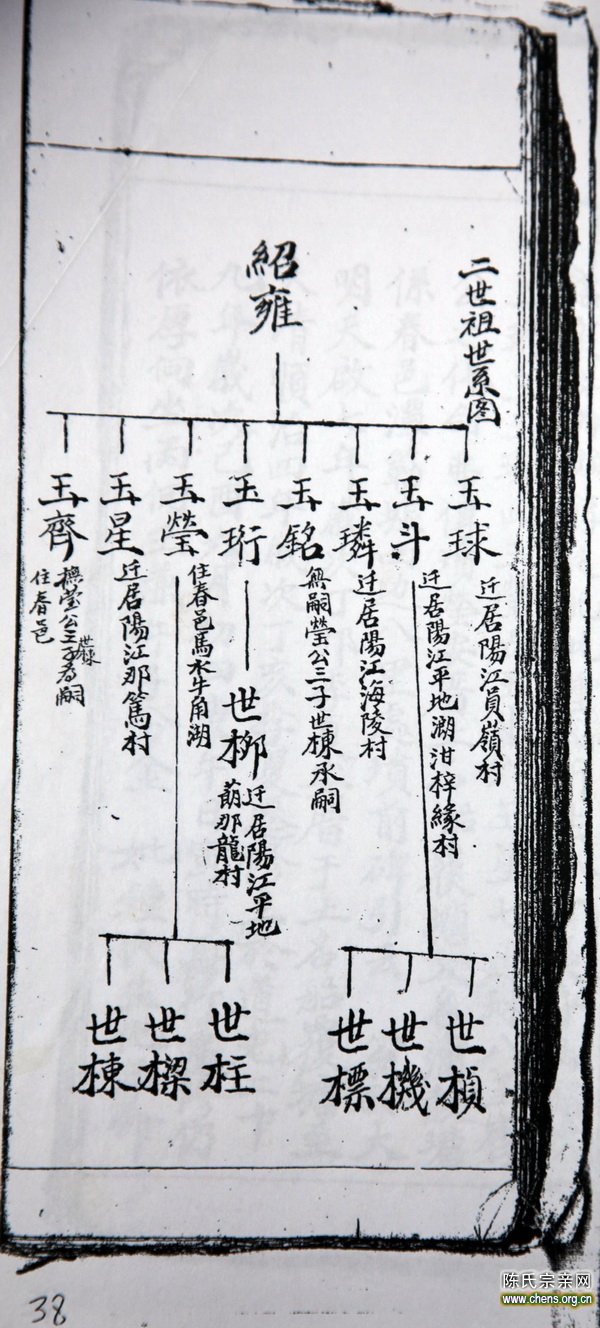 二世祖世系图
紹雍
玉球
迁居陽江員嶺村
玉斗
迁居陽江平地湖泔梓緣村
玉璘
迁居陽江海陵村
玉銘
無嗣瑩公三子世棟承嗣
玉珩
世柳
迁居陽江平地
蓢那龍村
玉瑩
住春邑馬水牛角湖
玉星
迁居陽江那篤村
玉齊
撫瑩公三子為嗣
住春邑
世楨
世機
世標
世柱
世樑
世棟
38
陈氏宗亲网
www.chens.org.cn